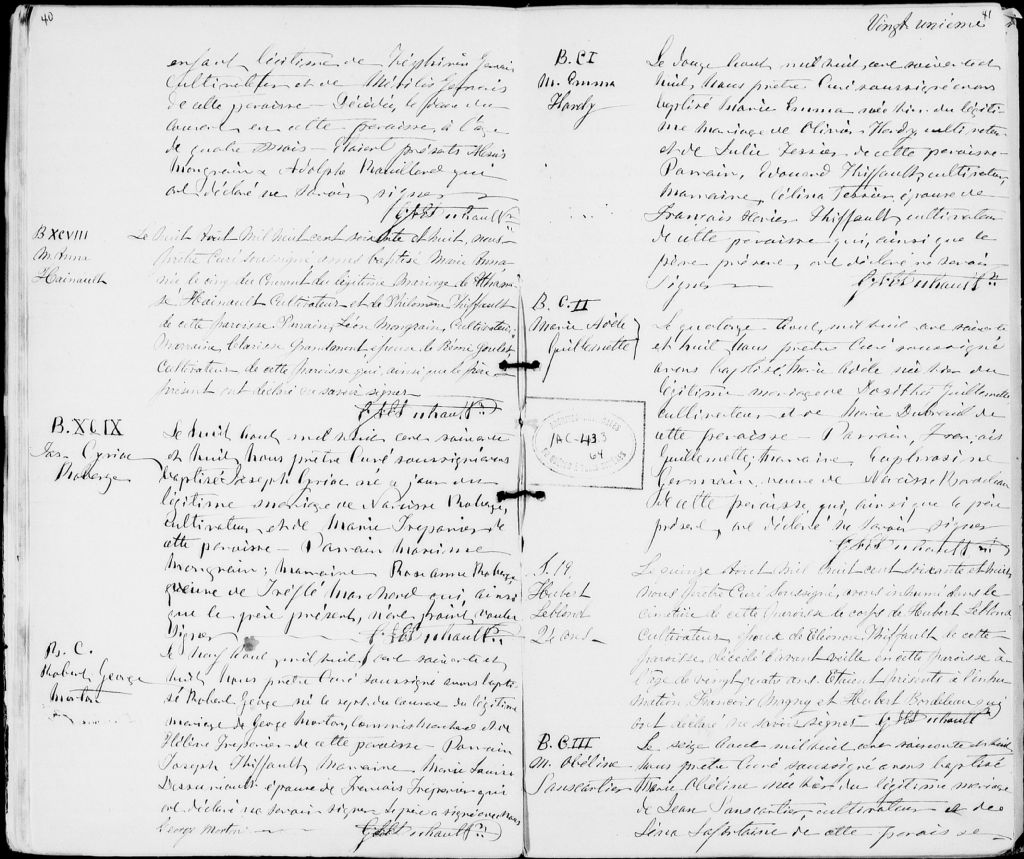 40
enfant légitime de Zéphirin Gervais
Cultivateur et de
de cette paroisse — Décédé, le
courant en cette paroisse, à l'age
de quatre mois — Etaient présents Alexis
Mongrain & Adolphe qui
ont déclaré ne savoir signer
B XCVIII
M. Anna
Hainault
Le huit Août Mil huit cent soixante et huit, nous
prêtre Curé soussigné avons baptisé Marie Anna
née le cinq du Courant du légitime Mariage de
Hainault Cultivateur et de Philomène Thiffault
de cette paroisse. Parrain, Léon Mongrain, Cultivateur,
Marraine, Clarisse Grandmont, épouse de
Cultivateur de cette Paroisse qui, ainsi que le père
présent ont déclaré ne savoir signer
B. XCIX
Jos. Cyriac
Roberge
Le huit Aout mil huit cent soixante
et huit, Nous prêtre Curé soussigné avons
baptisé Joseph Cyriac né a jour du
légitime mariage de Narcisse Roberge,
Cultivateur et de Marie Trepanier de
cette paroisse — Parrain
Mongrain; marraine Roseanna Roberge
veuve de Trefflé Marchand qui ainsi
que le père présent, n'ont
signer
B. C.
Robert George
Morton
Le neuf Aout, mil huit cent soixante et
huit, Nous prêtre Curé soussigné avons bapti-
sé Robert George né le sept du courant du légitime
mariage de George Morton, Commis Marchand & de
Hélène Trepanier de cette paroisse — Parrain
Joseph Thiffault, Marraine Marie Louise
épouse de Francois Trepanier qui
ont déclaré ne savoir signer. Le père a signé avec Nous
George Morton
41
Vingt unieme
B. CI
M. Emma
Hardy
Le douze Aout, mil huit, cent soixante et
huit, Nous prêtre Curé soussigné avons
baptisé Marie Emma née hier du légiti-
me mariage de Olivier Hardy, cultivateur
et de Julie Tessier de cette paroisse —
Parrain, Edouard Thiffault, cultivateur,
marraine, Célina Tessier, épouse de
Francois Thiffault, cultivateur
de cette paroisse qui, ainsi que le
père présent, ont déclaré ne savoir
signer
B. C. II
Marie Adèle
Guillemette
Le quatorze Aout, mil huit, cent soixante
et huit, Nous prêtre Curé soussigné
avons baptisé, Marie Adèle née hier du
légitime mariage de Dosithé Guillemette
Cultivateur et de Marie de
cette paroisse — Parrain, François
Guillemette; marraine Euphrosine
Germain, veuve de Narcisse Bordeleau
de cette paroisse, qui, ainsi que le père
présent, ont déclaré ne savoir signer
IAC-433
64
S. 19
Hubert
Leblond
24 ans
Le quinze Aout Mil huit cent Soixante et huit
Nous Prêtre Curé Soussigné, avons inhumé dans le
cimetière de cette Paroisse le corps de Hubert Leblond
Cultivateur, époux de Eléonore Thiffault de cette
paroisse, décédé l'avant veille en cette paroisse à
l'age de vingt quatre ans. Etaient présents à l'inhu-
mation, Francois Magny et Hubert Bordeleau qui
ont déclaré ne savoir signer
B. C. III
M. Obéline
Sanscartier
Le seize Aout mil huit cent soixante et huit
Nous prêtre Curé soussigné avons baptisé
Marie Obéline née hier du légitime mariage
de Jean Sanscartier, cultivateur et de
Lafontaine de cette parois se